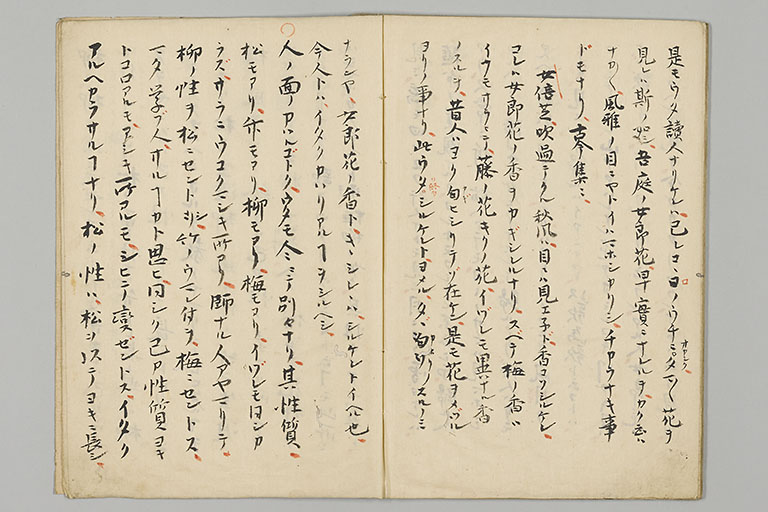 是モウタ讀人ナリケレハ己レニヨノウチニタマ〱花ヲ
見レハ斯ノ如シ吾庭ノ女郎花早ク實ニナレルヲカク云ハ
ナカ〱風雅ノ目ニヤトイハマホシカリシチカウナキ事
ドモナリ古今集ニ
女倍芝吹過テクル秋風ハ目ニハ見エ子ド香コソシルケレ
コレハ女郎花ノ香ヲカギシレルナリスベテ梅ノ香ハ
イフモサラニテ藤ノ花キクノ花イヅレモ異ナル香
ノスルヲ昔人ハヨク匂ヒシリテゾ在ケン是モ花ヲメヅル
ヨリノ事ナリ此ウタシルケレトヨメルタヾ匂ノスルノミ
ナランヤ女郎花ノ香トキヽシレハシルケレトイヘル也
今人トハイタクカハリアルヿヲシルヘシ
人ノ面ノカハルゴトクウタモ人々ニテ別々ナリ其性質
松モアリ竹モアリ柳モアリ梅モアリイヅレモ同シカ
ラズサラニウコクマシキ所アリ師ナル人アヤマリテ
柳ノ性ヲ松ニセントシ竹ノウマレ付ヲ梅ニセントス
マタ学フ人サルヿカト思ヒ同シク己ガ性質ヨキ
トコロアルモアシキ所アルモシヒテ変ゼントスイタク
アルヘカラサルヿナリ松ノ性ハ松ニシステヨキニ長シ